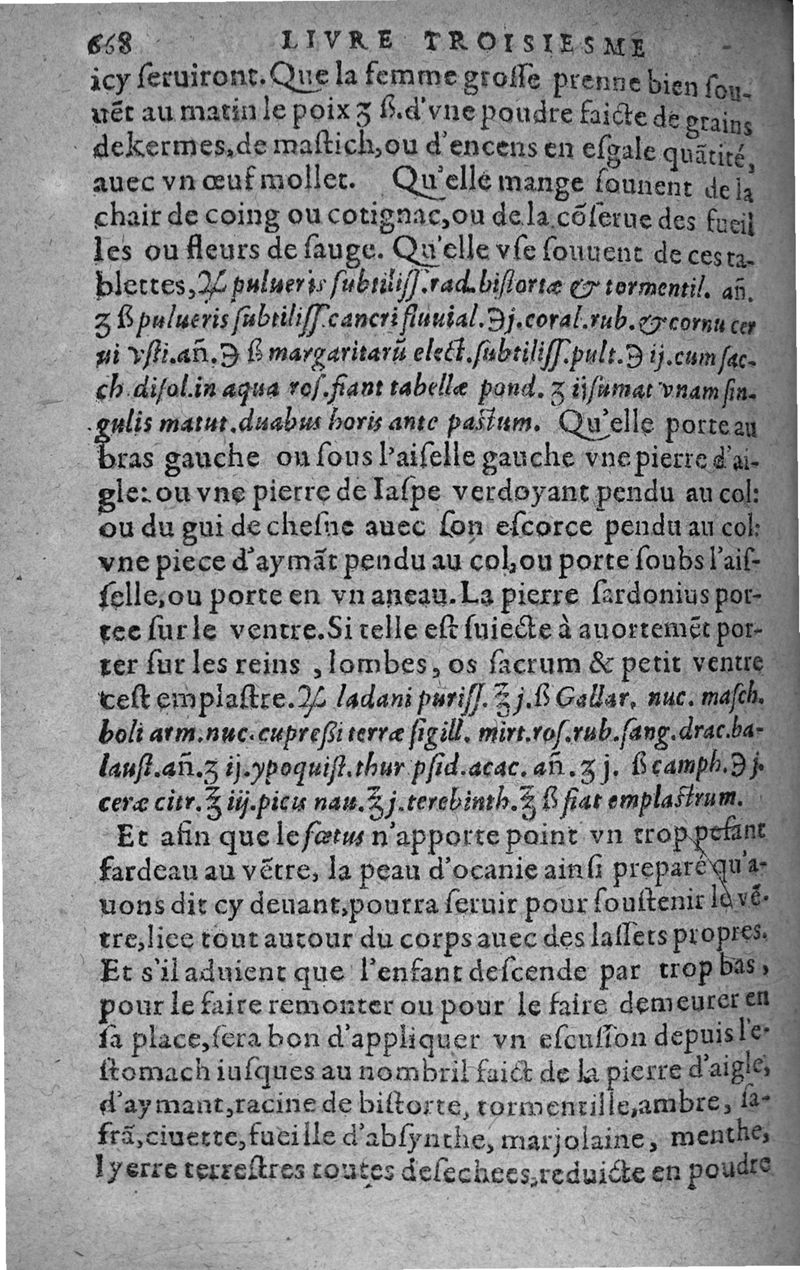 668 LIVRE TROISIESME
icy ſeruiront. Que la femme groſſe prenne bien ſou-
uēt au matin le poix ʒ ß. d'vne poudre faicte de grains
de kermes, de maſtich, ou d'encens en eſgale quātité,
auec vn œuf mollet. Qu'elle mange ſouuent de la
chair de coing ou cotignac, ou de la cōſerue des fueil
les ou fleurs de ſauge. Qu'elle vſe ſouuent de ces ta-
blettes, ℞ pulueris ſubtiliſſ. rad. biſtortæ & tormentil. añ.
ʒ ß pulueris ſubtiliſſ. cancri fluuial. ℈j. coral. rub. & cornu cer
ui vſti. añ. ℈ ß margaritarū elect. ſubtiliſſ. pult. ℈ ij. cum ſac-
ch. diſol. in aqua roſ. fiant tabellæ pond. ʒ ij ſumat vnam ſin-
gulis matut. duabus horis ante paſtum. Qu'elle porte au
bras gauche ou ſous l'aiſelle gauche vne pierre d'ai-
gle: ou vne pierre de Iaſpe verdoyant pendu au col:
ou du gui de cheſne auec ſon eſcorce pendu au col:
vne piece d'aymāt pendu au col, ou porte ſoubs l'aiſ-
ſelle, ou porte en vn aneau. La pierre ſardonius por-
tee ſur le ventre. Si telle eſt ſuiecte à auortemēt por-
ter ſur les reins , lombes, os ſacrum & petit ventre
ceſt emplaſtre. ℞ ladani puriſſ. ℥j. ß Gallar. nuc. maſch.
boli arm. nuc. cupreßi terræ ſigill. mirt. roſ. rub. ſang. drac. ba-
lauſt. añ. ʒ ij. ypoquiſt. thur pſid. acac. añ. ʒ j. ß camph. ℈ j.
ceræ citr. ℥ iij. picis nau. ℥j. terebinth. ℥ ß fiat emplaſtrum.
Et afin que le fœtus n'apporte point vn trop peſant
fardeau au vētre, la peau d'ocanie ainſi preparé qu'a-
uons dit cy deuant, pourra ſeruir pour ſouſtenir le vē-
tre, liee tout autour du corps auec des laſſets propres.
Et s'il aduient que l'enfant deſcende par trop bas,
pour le faire remonter ou pour le faire demeurer en
ſa place, ſera bon d'appliquer vn eſcuſſon depuis l'e-
ſtomach iuſques au nombril faict de la pierre d'aigle,
d'aymant, racine de biſtorte, tormentille, ambre, ſa-
frā, ciuette, fueille d'abſynthe, marjolaine, menthe,
lyerre terreſtres toutes deſechees, reduicte en poudre